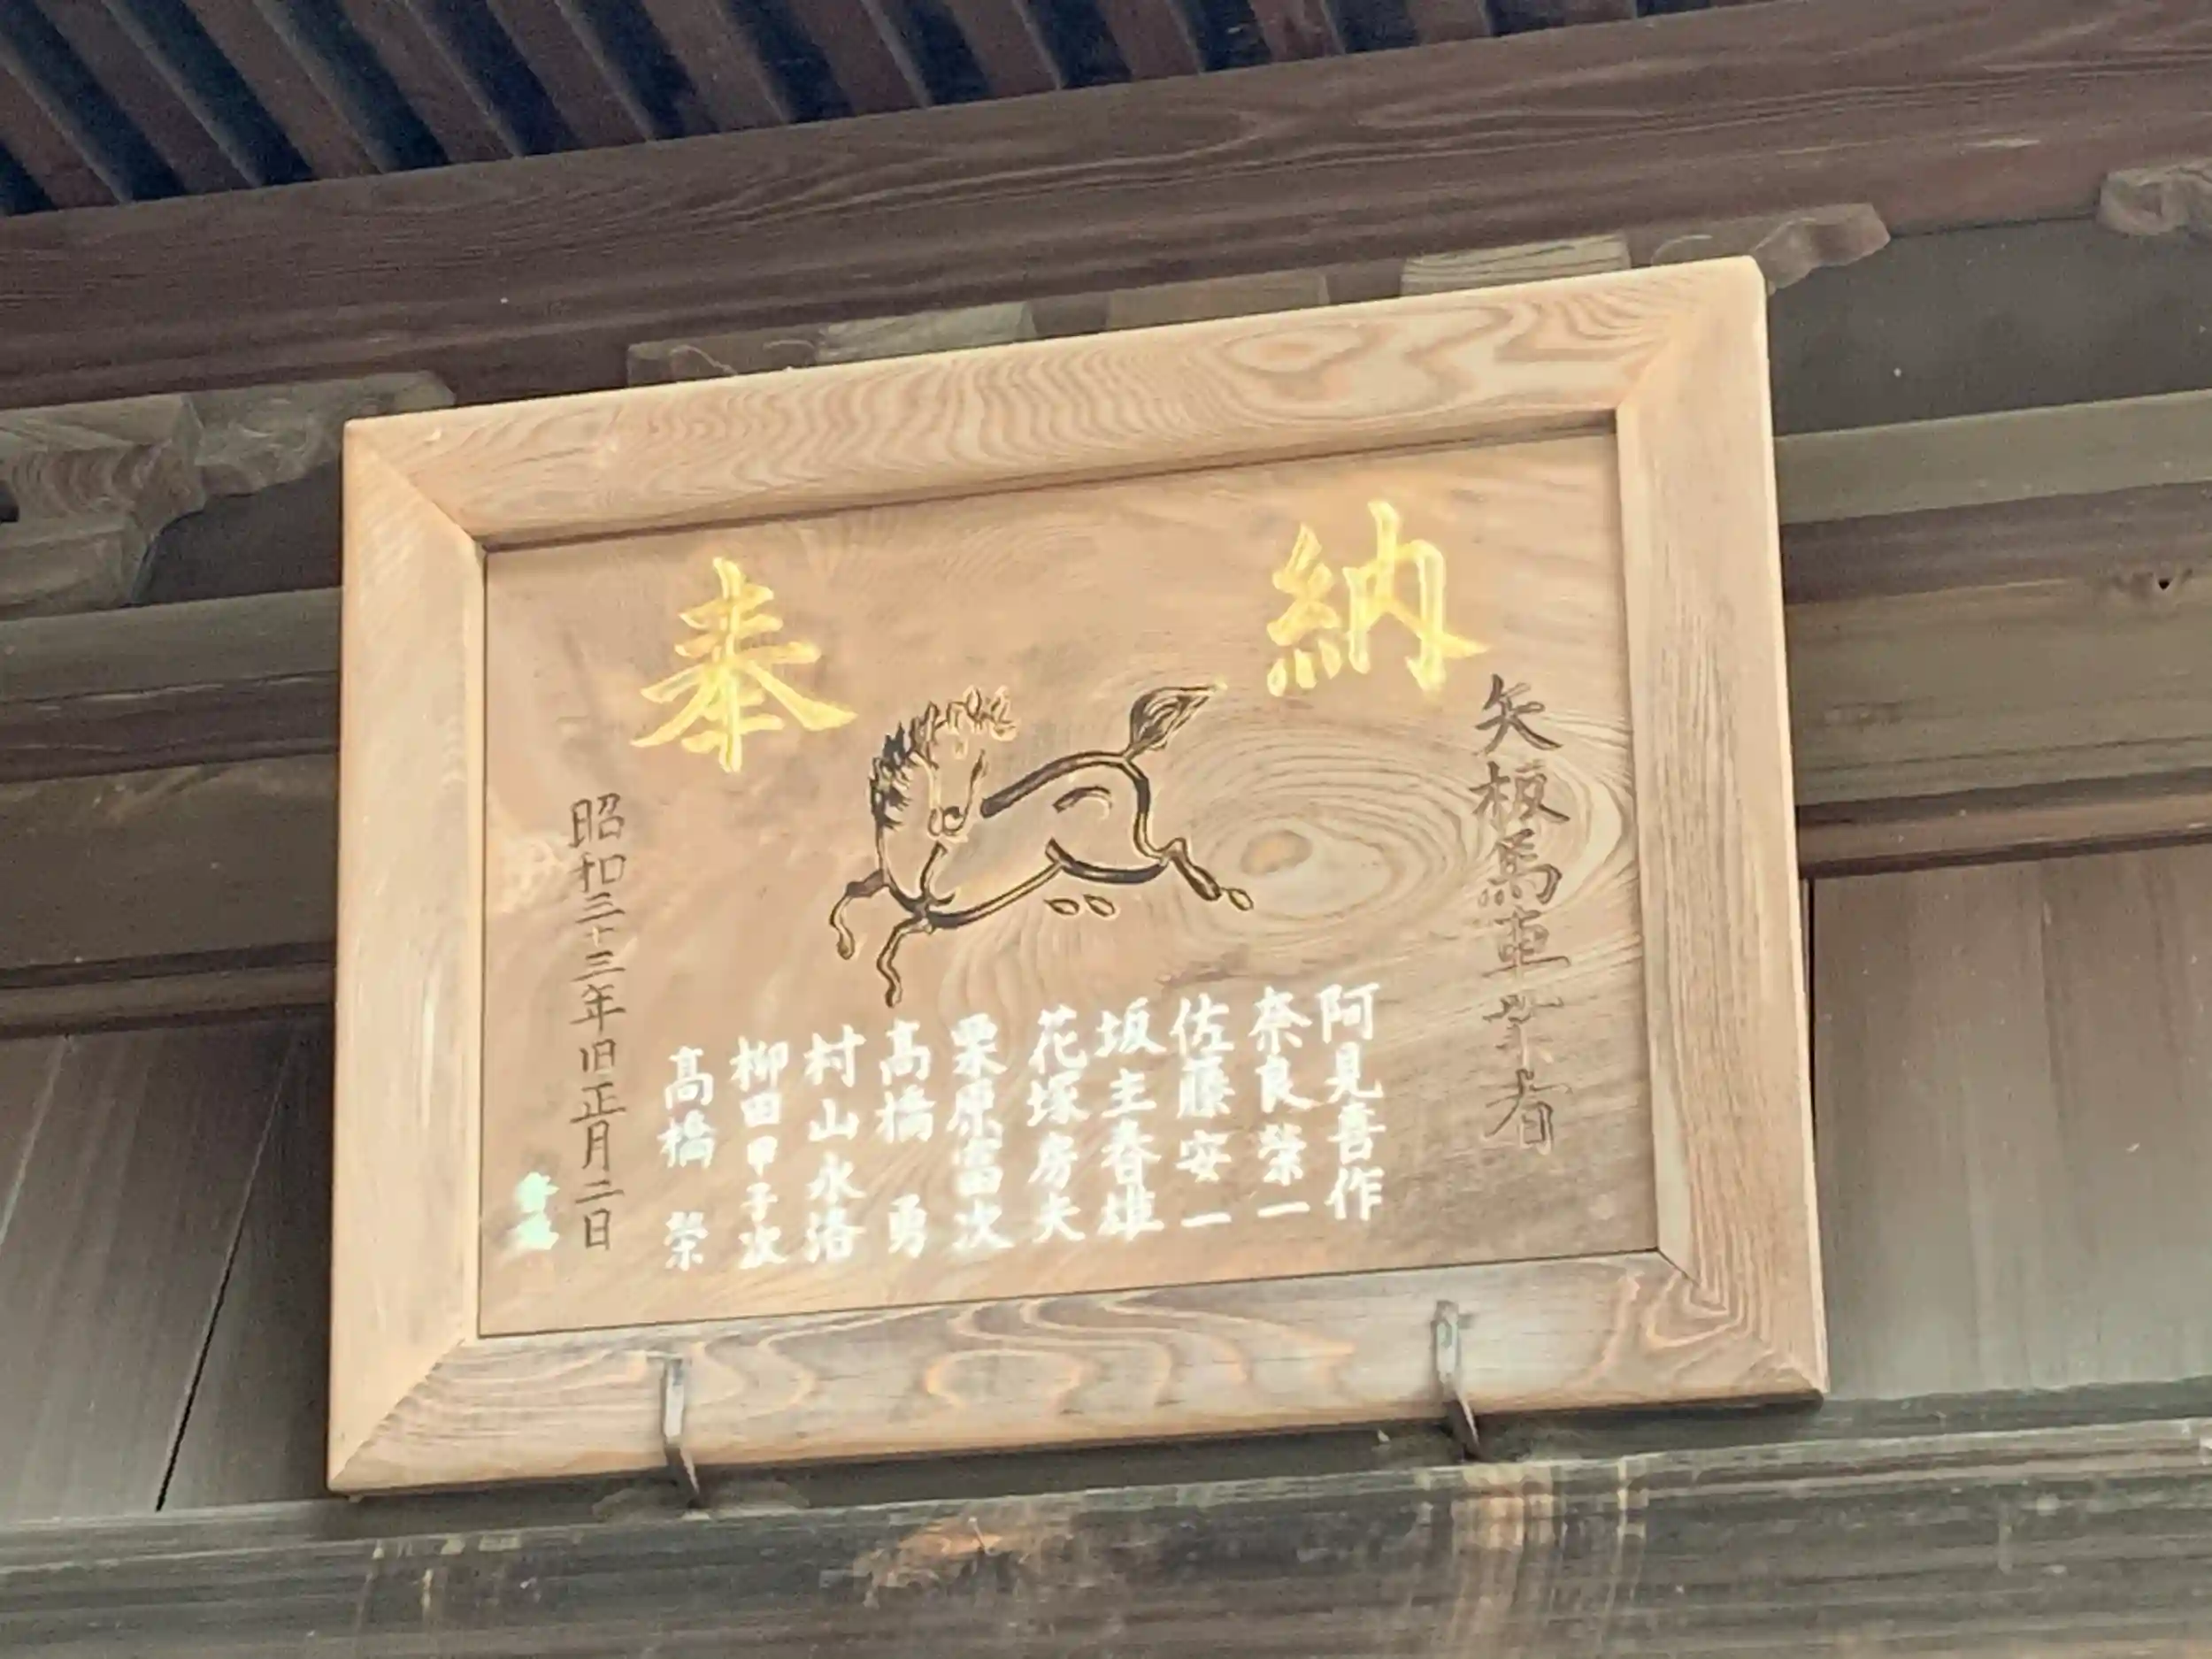 奉納
矢板馬車業者
阿見喜作
奈良榮一
佐藤安一
坂主春雄
花塚房夫
栗原富次
高橋 勇
村山永治
柳田甲子次
高橋 榮
昭和三十三年旧正月二日